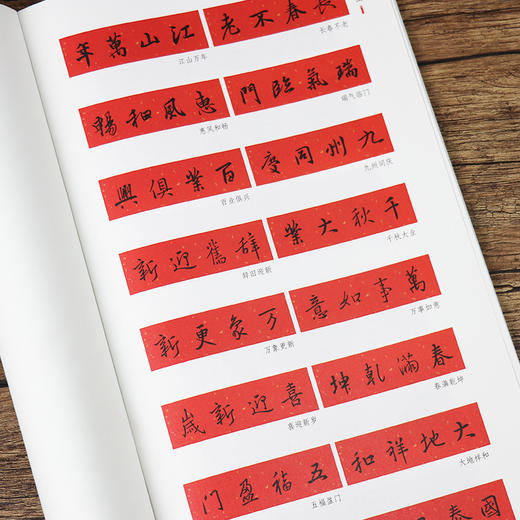 長春不老
长春不老
江山萬年
江山万年
瑞氣臨門
瑞气临门
惠風和暢
惠风和畅
九州同慶
九州同庆
百業俱興
百业俱兴
千秋大業
千秋大业
辭舊迎新
辞旧迎新
萬事如意
万事如意
万象更新
万象更新
春滿乾坤
春满乾坤
喜迎新歲
喜迎新岁
大地祥和
大地祥和
五福盈门
五福盈门
國泰